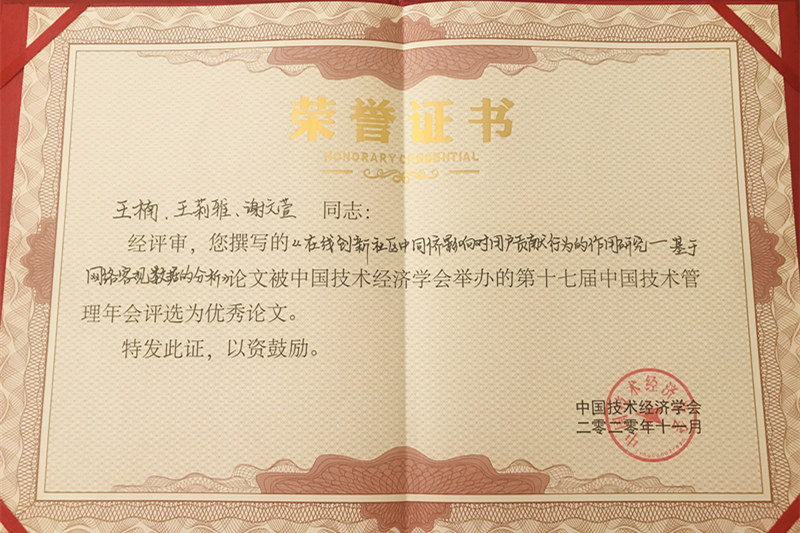 荣誉证书
HONORARY CREDENTIAL
王楠、王莉雅、谢文萱 同志：
经评审，您撰写的《在线创新社区中同侪影响对用户贡献行为的作用研究—基于
网络客观数据的分析》论文被中国技术经济学会举办的第十七届中国技术管
理年会评选为优秀论文。
特发此证，以资鼓励。
中国技术经济学会
二零二零年十一月
中国技术经济学会